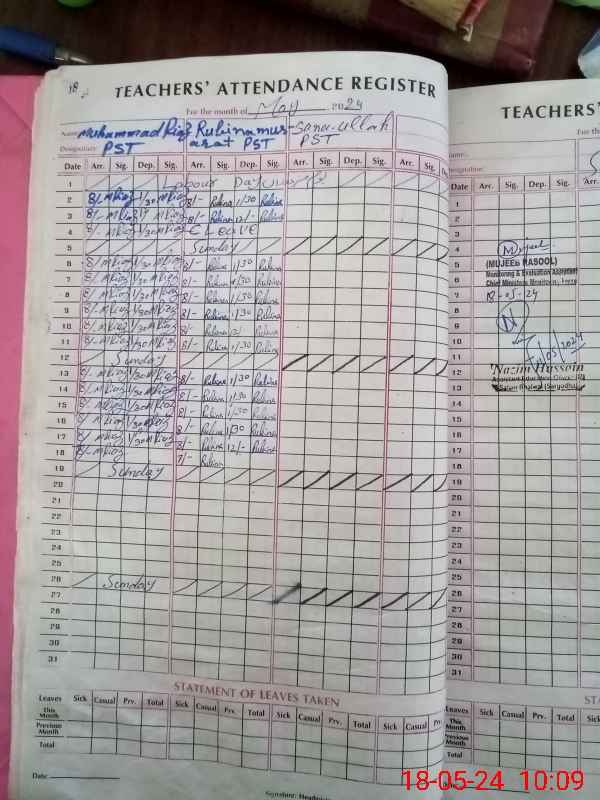 18
TEACHERS' ATTENDANCE REGISTER
For the month of May 2024
Name Muhammad Riaz Rubina mus- Sana-ullah
Designation: PST arat PST PST
Date Arr. Sig. Dep. Sig. Arr. Sig. Dep. Sig. Arr. Sig. Dep. Sig. Arr. Sig. Dep.
1 Labour Day
2 8/- MRiaz 1/30 MRiaz 8/- Rubina 1/30 Rubina
3 8/- MRiaz MRiaz 8/- Rubina 12/- Rubina
4 8/- MRiaz MRiaz C Leave
5 Sunday
6 8/- MRiaz 1/30 MRiaz 8/- Rubina 1/30 Rubina
7 8/- MRiaz 1/30 MRiaz 8/- Rubina 1/30 Rubina
8 8/- MRiaz 1/30 MRiaz 8/- Rubina 1/30 Rubina
9 8/- MRiaz 1/30 MRiaz 8/- Rubina 1/30 Rubina
10 8/- MRiaz 1/30 MRiaz 8/- Rubina Rubina
11 8/- MRiaz 1/30 MRiaz 8/- Rubina 1/30 Rubina
12 Sunday
13 8/- MRiaz 1/30 MRiaz 8/- Rubina 1/30 Rubina
14 8/- MRiaz 1/30 MRiaz 8/- Rubina 1/30 Rubina
15 8/- MRiaz 1/30 MRiaz 8/- Rubina 1/30 Rubina
16 8/- MRiaz 1/30 MRiaz 8/- Rubina 1/30 Rubina
17 8/- MRiaz 1/30 MRiaz 8/- Rubina 12/- Rubina
18 8/- MRiaz 7/- Rubina
19 Sunday
20
21
22
23
24
25
26 Sunday
27
28
29
30
31
STATEMENT OF LEAVES TAKEN
Leaves Sick Casual Prv. Total Sick Casual Prv. Total Sick Casual Prv. Total Sick Casual Prv.
This Month
Previous Month
Total
Date:
Signature:
TEACHERS'
For the
Name:
Designation:
Date Arr. Sig. Dep. Sig. Arr.
1
2
3
4 Mujeeb
5 (MUJEEB RASOOL)
6 Monitoring & Evaluation Assistant
Chief Minister
7 18-05-24
8
9
10
11
12 Nazim Hussain
13
14
15
16
17
18
19
20
21
22
23
24
25
26
27
28
29
30
31
STA
Leaves Sick Casual Prv. Total Sick
This Month
Previous Month
Total
18-05-24 10:09